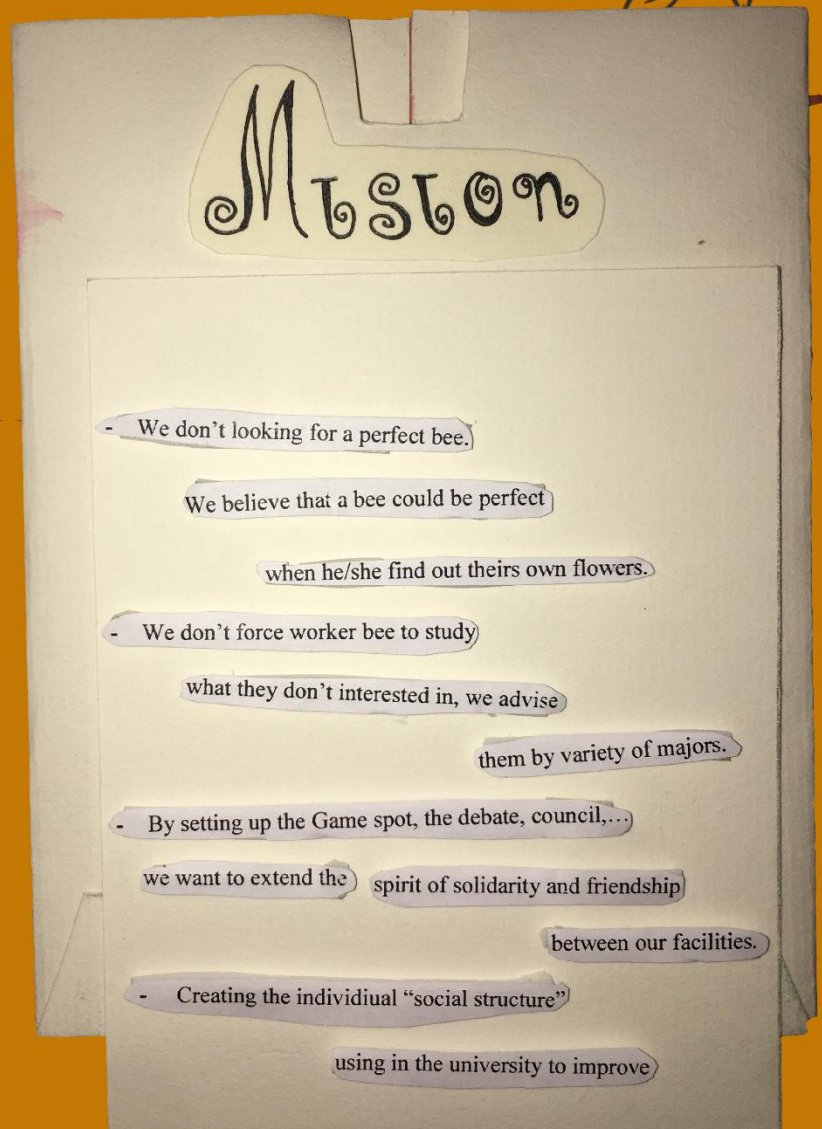 Mision
- We don't looking for a perfect bee.
We believe that a bee could be perfect
when he/she find out theirs own flowers.
- We don't force worker bee to study
what they don't interested in, we advise
them by variety of majors.
- By setting up the Game spot, the debate, council,...
we want to extend the spirit of solidarity and friendship
between our facilities.
- Creating the individiual “social structure”
using in the university to improve